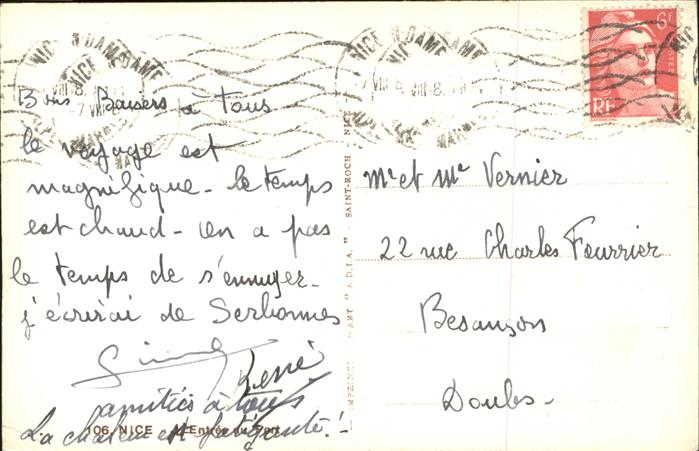 Bons Baisers à tous
le voyage est
magnifique - le temps
est chaud - on a pas
le temps de s'ennuyer -
j'écrirai de Serbonnes
René
amitiés à tous
La chaleur est fatigante !
106. NICE L'Entrée du Port
"ART "A.D.I.A." - SAINT-ROCH - NICE
NICE R. DAME
6F
RF
Mr et Me Vernier
22 rue Charles Fourrier
Besançon
Doubs -